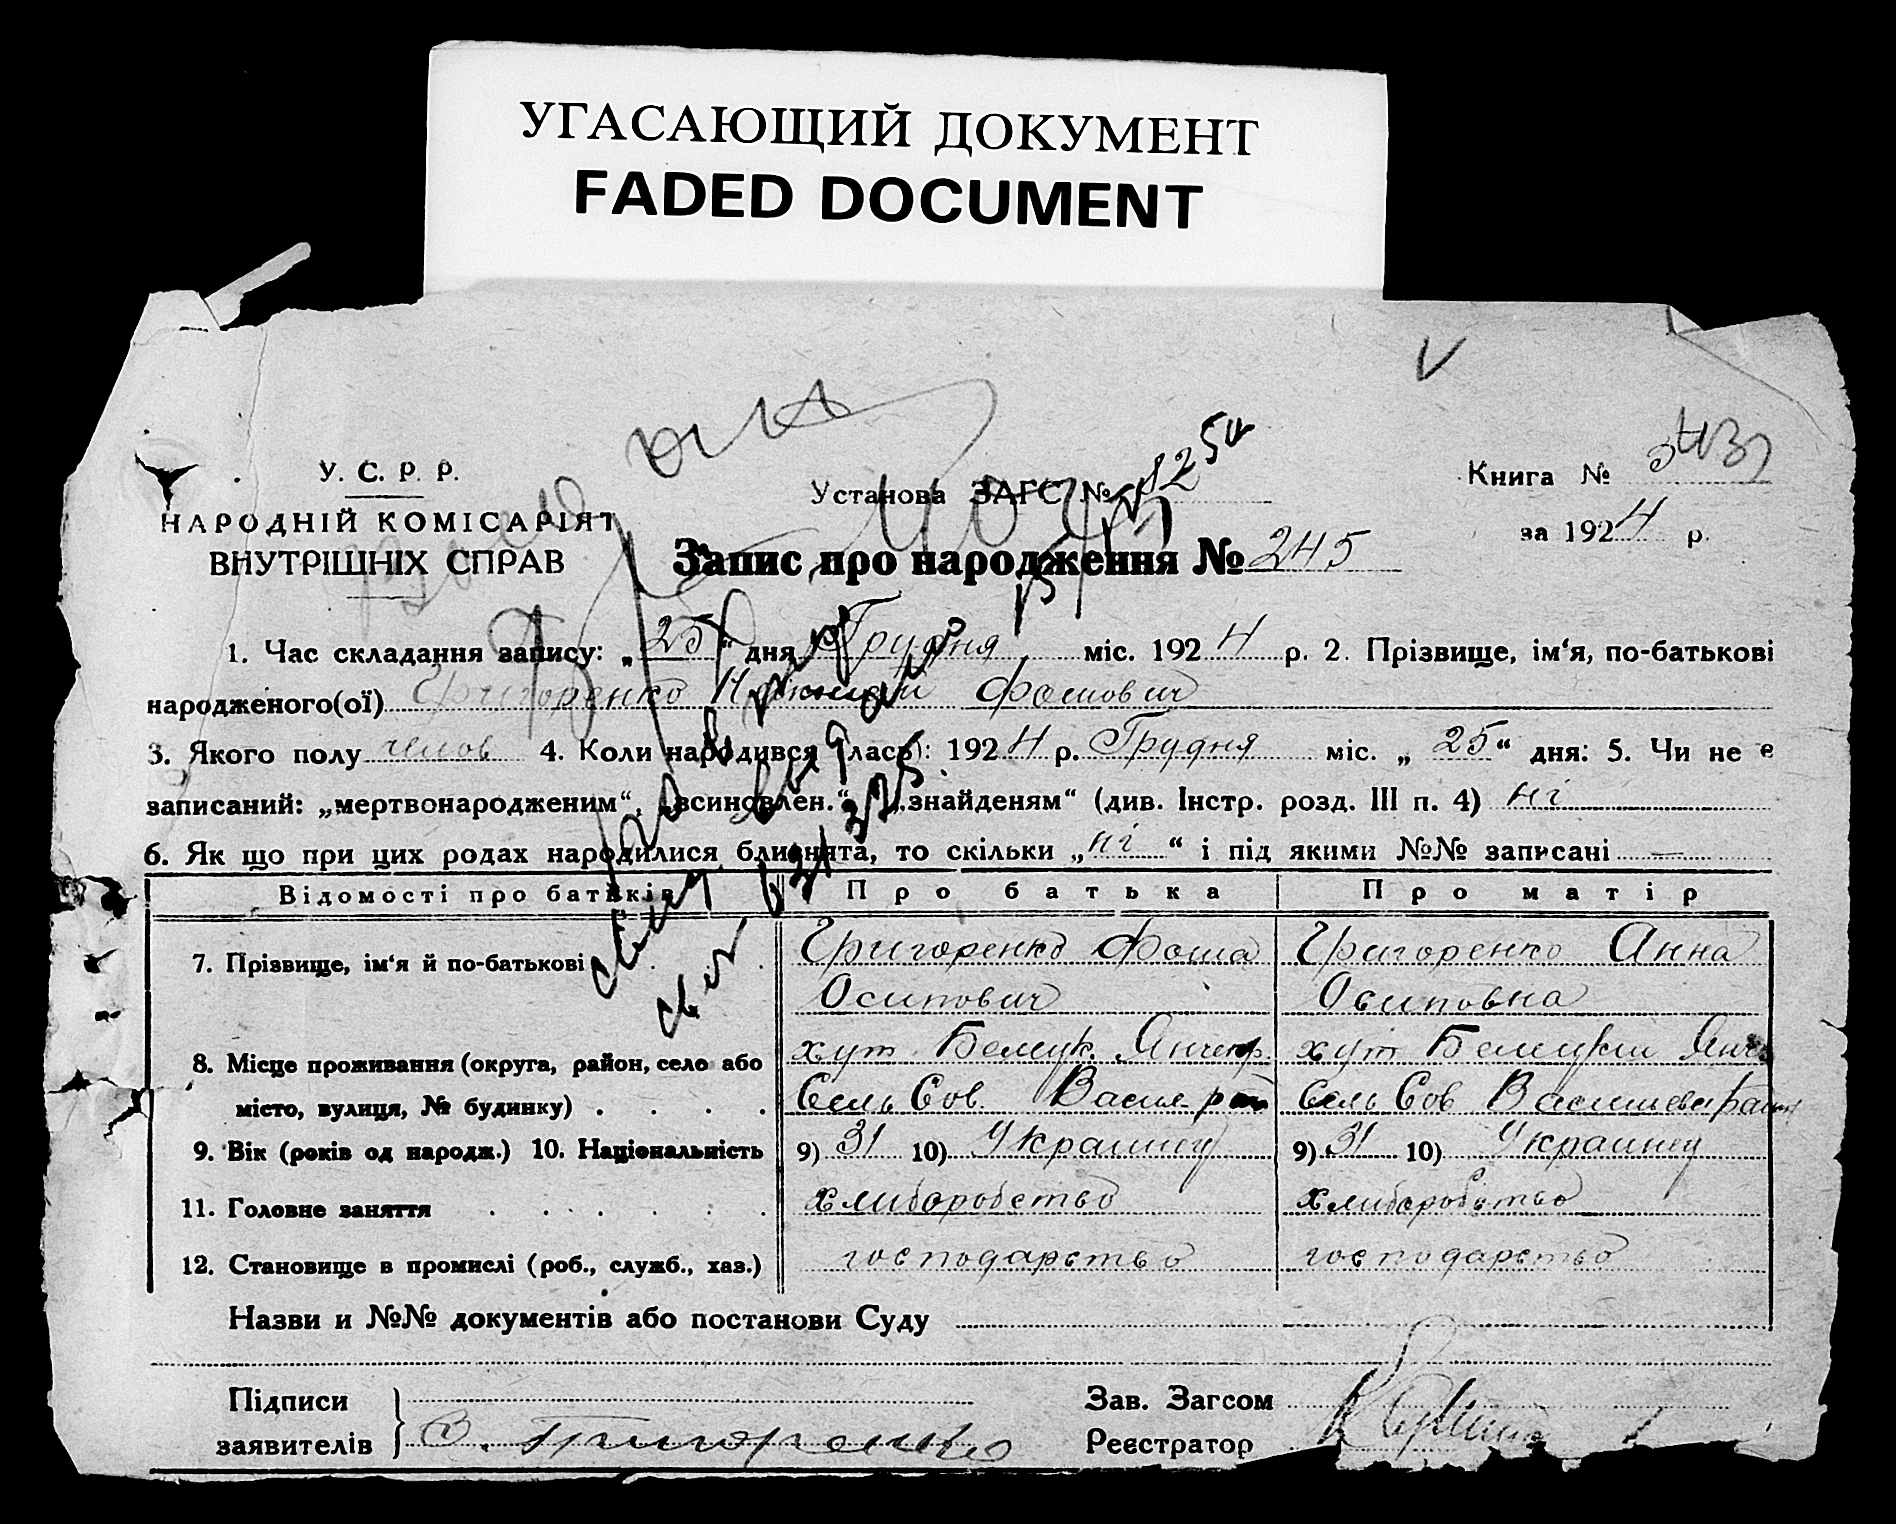 УГАСАЮЩИЙ ДОКУМЕНТ
FADED DOCUMENT
У. С. Р. Р.
НАРОДНІЙ КОМІСАРІЯТ
ВНУТРІШНІХ СПРАВ
Установа ЗАГС №
Книга №
за 1924 р.
Запис про народження № 245
1. Час складання запису: „25“ дня Грудня міс. 1924 р. 2. Прізвище, ім‘я, по-батькові
народженого(ої) Григоренко Фомович
3. Якого полу челов 4. Коли народився (лась): 1924 р. Грудня міс. „25“ дня: 5. Чи не є
записаний: „мертвонародженим“, „всиновлен.“, „знайденям“ (див. Інстр. розд. III п. 4) ні
6. Як що при цих родах народилися близнята, то скільки „ні“ і під якими №№ записані —
Відомості про батьків Про батька Про матір
7. Прізвище, ім‘я й по-батькові Григоренко Фома Григоренко Анна
Осипович Осиповна
8. Місце проживання (округа, район, село або хут. Белецк. Янчекр. хут Белецкий Янч
місто, вулиця, № будинку) Сель Сов. Васил. р Сель Сов Василевс
9. Вік (років од народж.) 10. Національність 9) 31 10) Украинец 9) 31 10) Украинец
11. Головне заняття хлиборобство хлиборобство
12. Становище в промислі (роб., служб., хаз.) господарство господарство
Назви и №№ документів або постанови Суду
Підписи Зав. Загсом
заявителів Григоренко Реєстратор